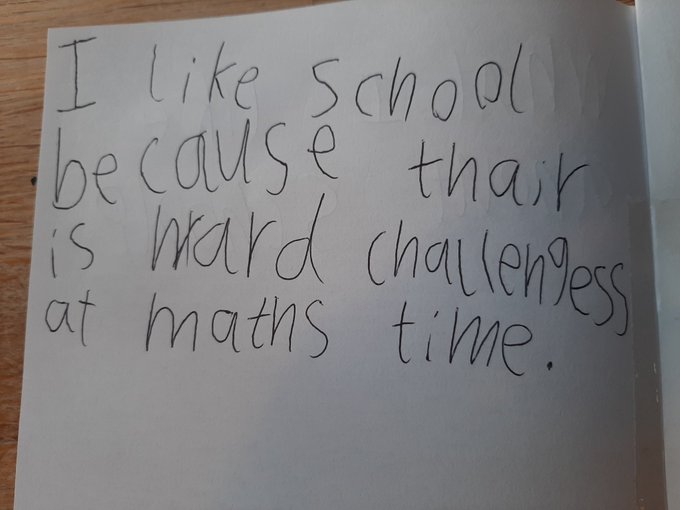 I like school
because thair
is hard challengess
at maths time.